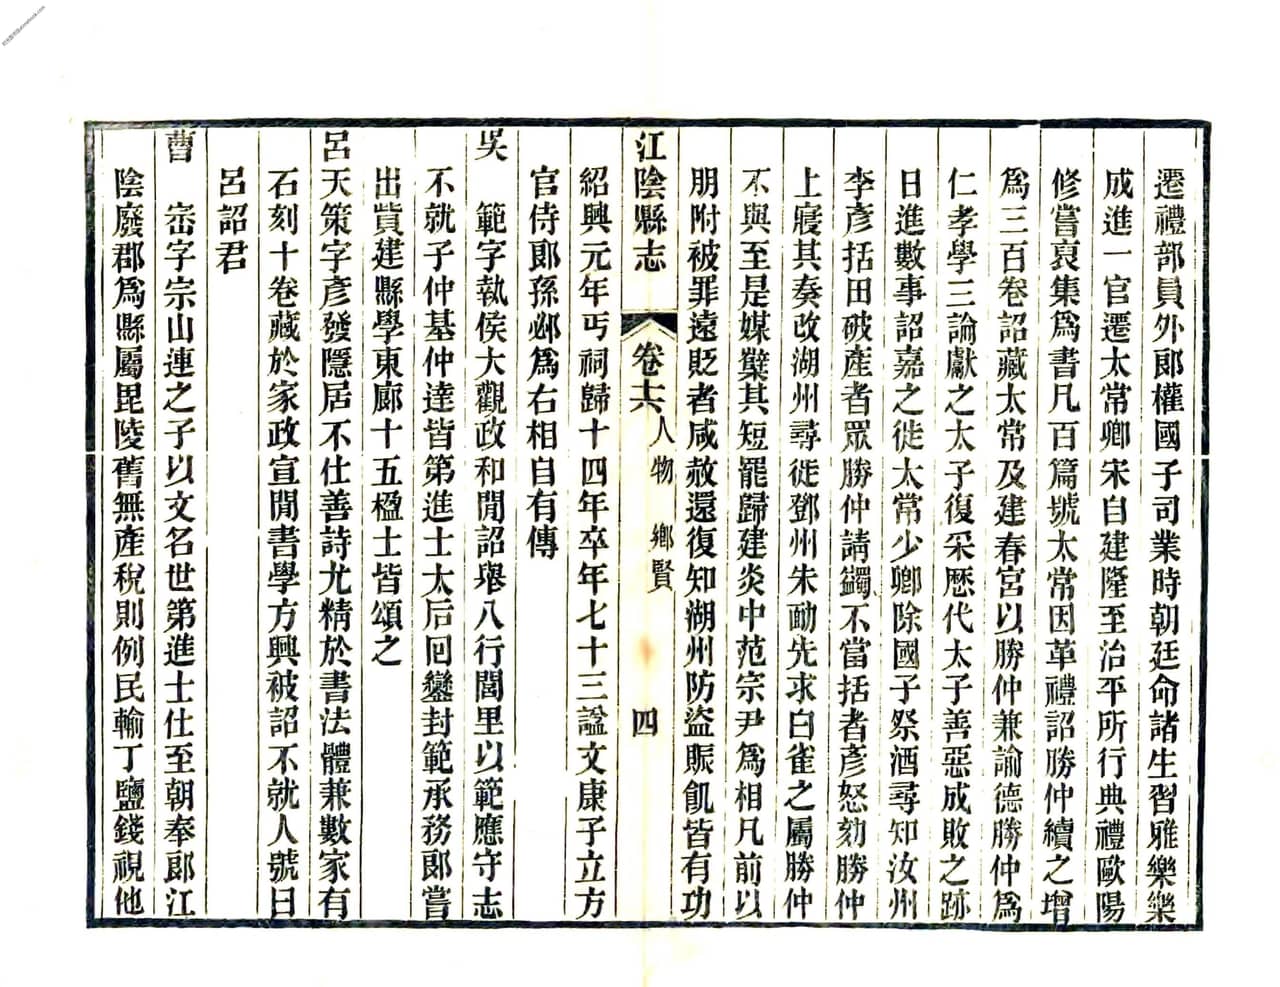 遷禮部員外郎權國子司業時朝廷命諸生習雅樂樂
成進一官遷太常卿宋自建隆至治平所行典禮歐陽
修嘗裒集爲書凡百篇號太常因革禮詔勝仲續之增
爲三百卷詔藏太常及建春宮以勝仲兼諭德勝仲爲
仁孝學三論獻之太子復采歷代太子善惡成敗之跡
日進數事詔嘉之徙太常少卿除國子祭酒尋知汝州
李彥括田破產者眾勝仲請蠲不當括者彥怒劾勝仲
上寢其奏改湖州尋徙鄧州朱勔先求白雀之屬勝仲
不與至是媒糵其短罷歸建炎中范宗尹爲相凡前以
朋附被罪遠貶者咸赦還復知湖州防盜賑飢皆有功
江陰縣志
卷十六
人物 鄉賢
四
紹興元年丐祠歸十四年卒年七十三謚文康子立方
官侍郎孫邲爲右相自有傳
吳 範字執侯大觀政和閒詔舉八行閭里以範應守志
不就子仲基仲達皆第進士太后回鑾封範承務郎嘗
出貲建縣學東廊十五楹士皆頌之
呂天策字彥發隱居不仕善詩尤精於書法體兼數家有
石刻十卷藏於家政宣閒書學方興被詔不就人號曰
呂詔君
曹 崈字宗山連之子以文名世第進士仕至朝奉郎江
陰廢郡爲縣屬毘陵舊無產稅則例民輸丁鹽錢視他